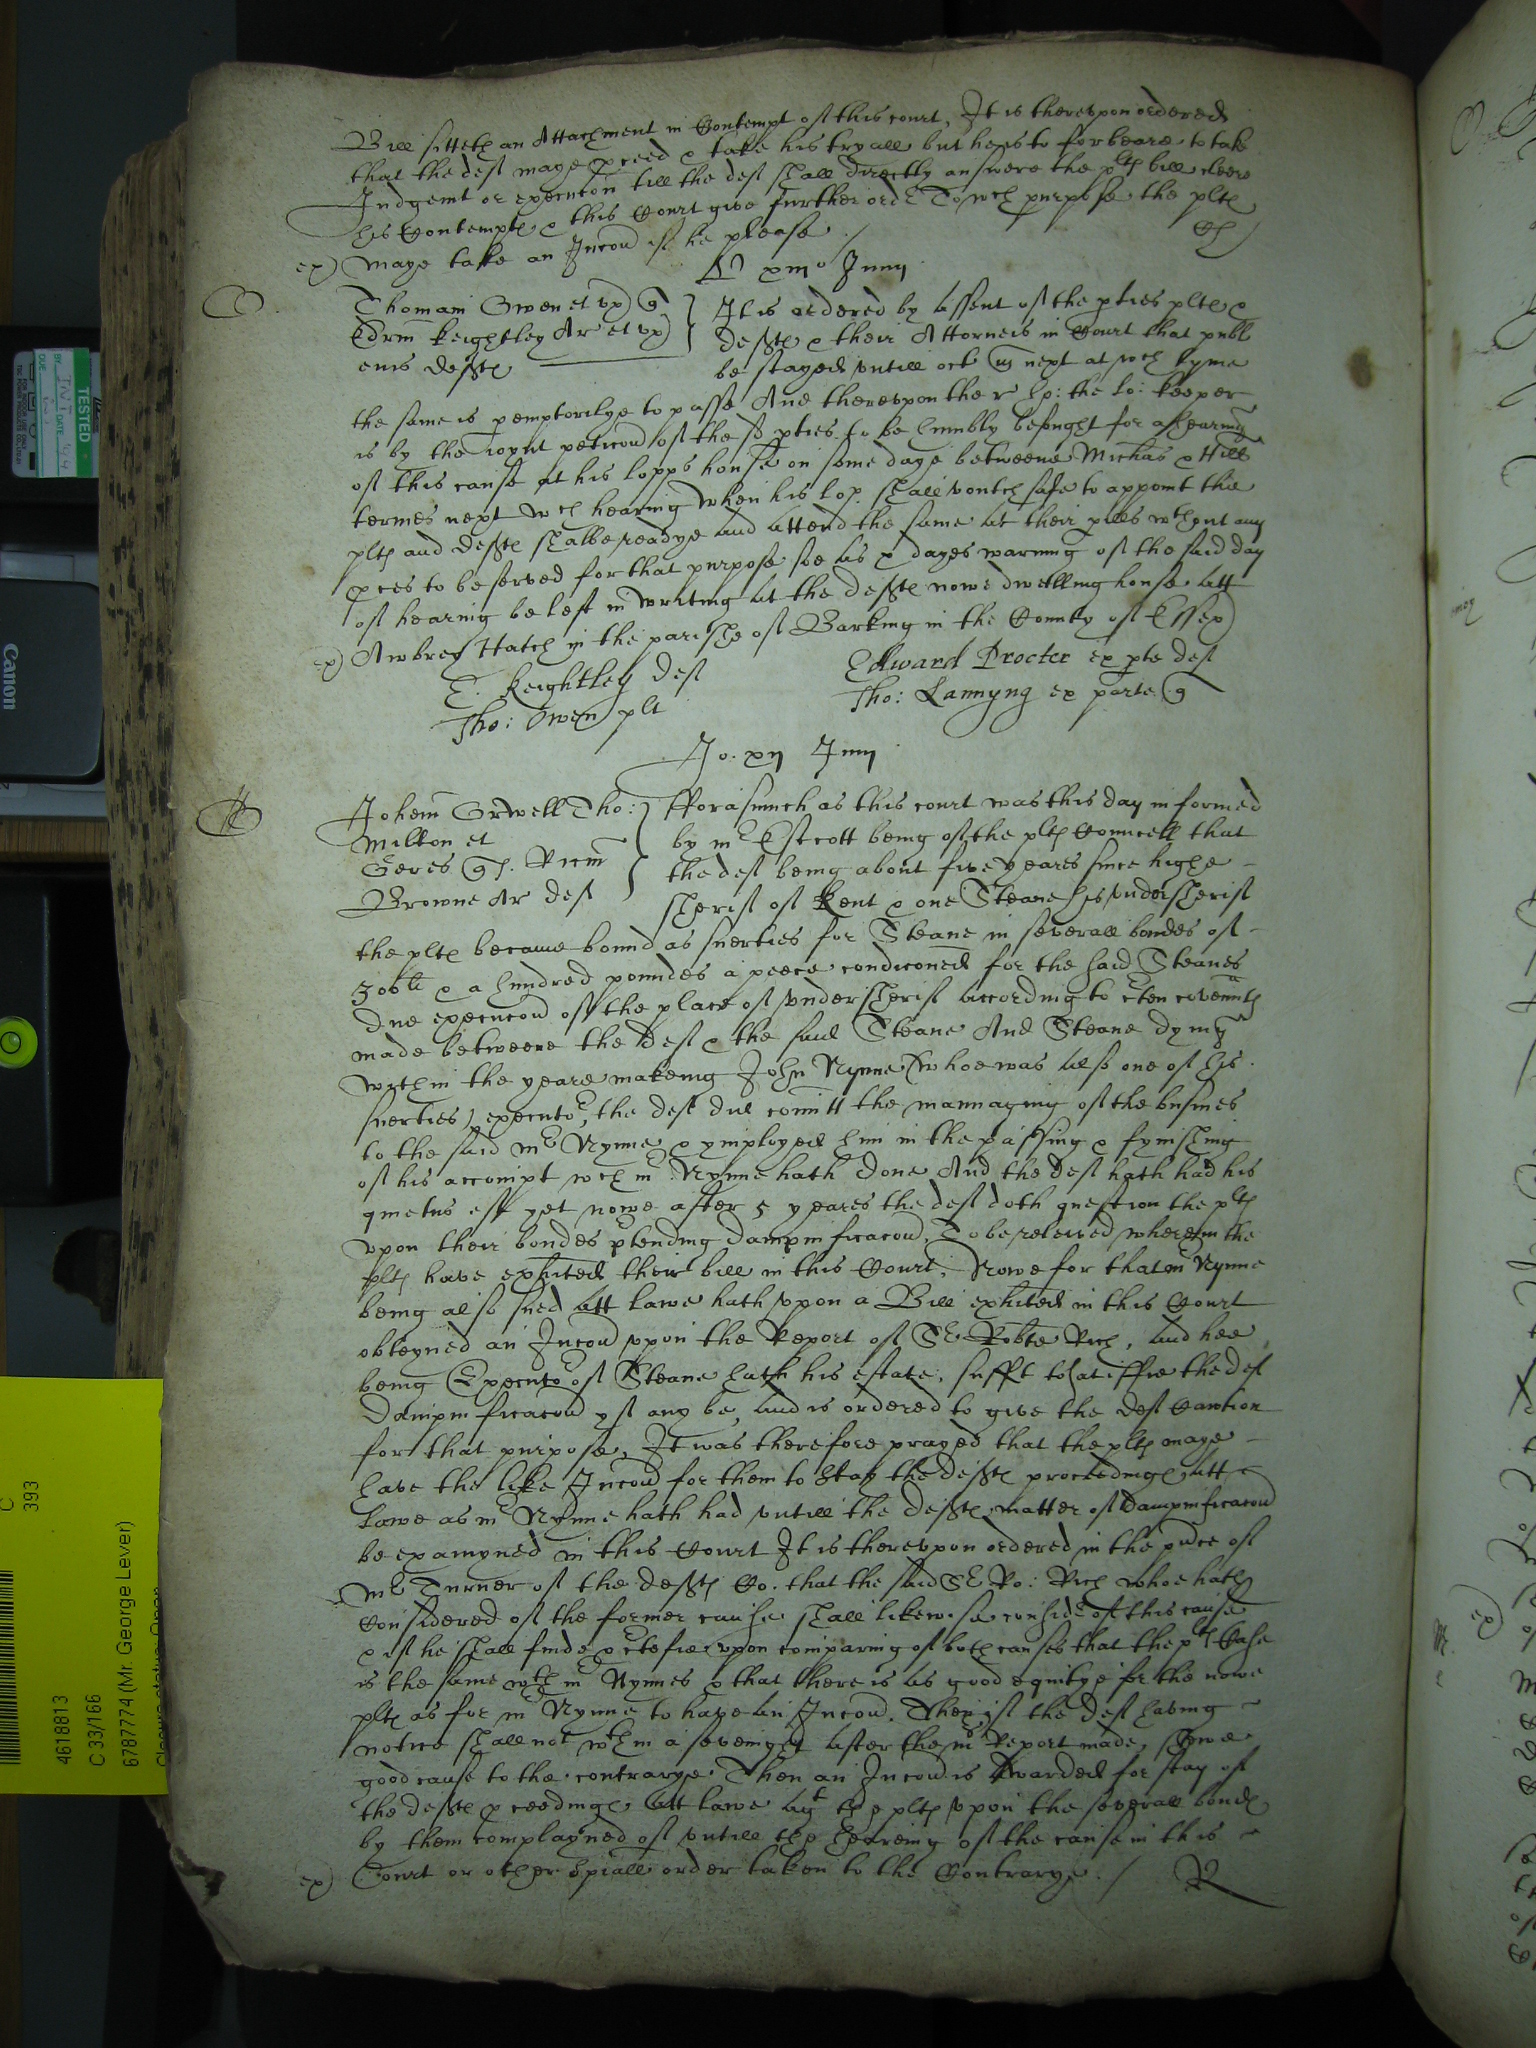 Bill sitteth an Attachment in Contempt of this court, It is therevpon ordered
that the def maye pceed & take his tryall but hee is to forbeare to take
Iudgemt or execucon till the def shall directly answere the plts bill cleere
his Contempte & this Court give further ordr To wch purpose the plte
ex) maye take an Iuncon if he please /
xmo Junij
Thomam Owen et vx) q
Edrm Keightley Ar et vx)
deftes
It is ordered by assent of the pties plte &
deftes & their Attorneis in Court that publ
be stayed vntill oct next at wch tyme
the same is pemptorilye to passe And therevpon the r ho: the lo: keeper
is by the ioynt peticon of the sd pties to be humbly besought for a hearing
of this cause at his lopps house on some daye betweene Michas & Hill
termes next wch hearing when his lop shall vouch safe to appoint the
plts and deftes shalbe readye and attend the same at their pills wthout any
pces to be served for that purpose soe as x dayes warning of the said day
of hearing be left in writing at the deftes nowe dwelling house att
ex) Awbrey Hatch in the parishe of Barking in the County of Essex)
E. Keightley def
Edward Procter ex pte def
Tho: Owen plt
Tho: Lannyng ex parte q
Jo. xij Junij
Johem Orwell Tho:
Milton et
Geres q. Ricm
Browne Ar def
Fforasmuch as this court was this day informed
by mr Estcott being of the plts Councell that
the def being about five yeares since highe
sherif of Kent & one Steane his vndersherif
the plts became bound as suerties for Steane in severall bondes of
300li & a hundred poundes a peece condiconed for the said Steanes
due execucon of the place of vndersherif according to cten covennts
made betweene the def & the said Steane And Steane dying
wythin the yeare makeing John Nynne (whoe was also one of his
suerties) executor, the def did comitt the mannaging of the busines
to the said mr Nynne & ymployed him in the passing & fynishing
of his accompt wch mr Nynne hath done And the def hath had his
quietus est yet nowe after 5 yeares the def doth question the plts
vpon their bondes ptending dampnificacon, To be releived wherein the
plts have exhited their bill in this Court, Nowe for that mr Nynne
being also sued att lawe hath vpon a Bill exhited in this Court
obteyned an Iuncon vpon the Report of Sr Robte Rich, And hee
being Executor of Steane hath his estate, sufft to satisffie the def
dampnificacon yf any be, and is ordered to give the def Caution
for that purpose, It was therefore prayed that the plts maye
have the like Iuncon for them to stay the deftes proceedinges att
lawe as mr Nynne hath had vntill the deftes matter of dampnificacon
be examyned in this Court It is therevpon ordered in the pnce of
mr Turner of the deftes Co. that the said Sr Ro: Rich whoe hath
Considered of the former cause shall likewise considr of this cause
& if he shall finde & ctefie vpon comparing of both causes that the plts Case
is the same wth mr Nynnes & that there is as good equitye for the nowe
plts as for mr Nynne to have an Iuncon, Then if the def having
notice shall not wthin a sevenight after the Report made, shewe
good cause to the contrarye Then an Iuncon is Awarded for stay of
the deftes pceedinges att lawe agt the plts vpon the severall bondes
by them complayned of vntill the heareing of the cause in this
ex) Court or other spiall order taken to the Contrarye. / R
TESTED
BY INT DATE
DUE
Canon
C
393
4618813
C 33/166
6787774 (Mr. George Lever)
Closure status: Open